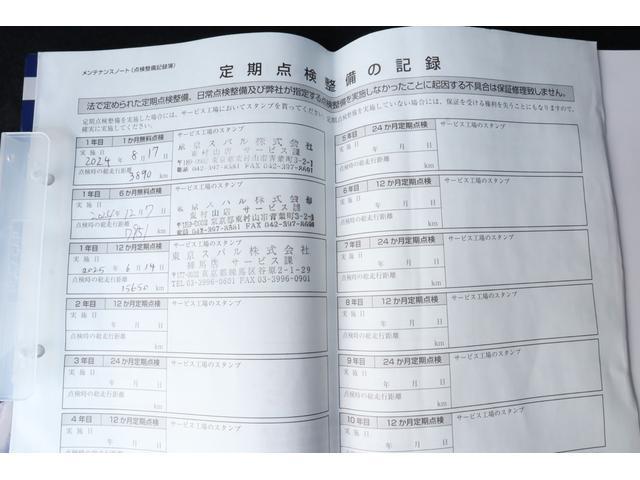 メンテナンスノート(点検整備記録簿)
定期点検整備の記録
法で定められた定期点検整備、日常点検整備及び弊社が指定する点検整備を実施しなかったことに起因する不具合は保証修理致しません。
定期点検整備を実施した場合には、サービス工場においてスタンプを貰ってください。定期点検整備を実施していない場合には、保証を受ける権利を失うことにもなりますので、
確実に実施してください。
1年目 1か月無料点検 サービス工場のスタンプ
実施日
2024年8月17日
点検時の総走行距離
3890 km
東京スバル株式会社
東村山店 サービス課
東京都東村山市青葉町3-2-1
1年目 6か月無料点検 サービス工場のスタンプ
実施日
2024年12月7日
点検時の総走行距離
7851 km
東京スバル株式会社
東村山店 サービス課
東京都東村山市青葉町3-2-1
1年目 12か月定期点検 サービス工場のスタンプ
実施日
2025年6月14日
点検時の総走行距離
15650 km
東京スバル株式会社
練馬店 サービス課
東京都練馬区谷原2-1-29
TEL 03-3996-0801 FAX 03-3996-0901
2年目 12か月定期点検 サービス工場のスタンプ
実施日
年 月 日
点検時の総走行距離
km
3年目 24か月定期点検 サービス工場のスタンプ
実施日
年 月 日
点検時の総走行距離
km
4年目 12か月定期点検 サービス工場のスタンプ
実施日
年 月 日
5年目 24か月定期点検 サービス工場のスタンプ
実施日
年 月 日
点検時の総走行距離
km
6年目 12か月定期点検 サービス工場のスタンプ
実施日
年 月 日
点検時の総走行距離
km
7年目 24か月定期点検 サービス工場のスタンプ
実施日
年 月 日
点検時の総走行距離
km
8年目 12か月定期点検 サービス工場のスタンプ
実施日
年 月 日
点検時の総走行距離
km
9年目 24か月定期点検 サービス工場のスタンプ
実施日
年 月 日
点検時の総走行距離
km
10年目 12か月定期点検 サービス工場のスタンプ
実施日
年 月 日